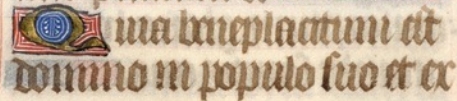 Quia beneplacitum est
domino in populo suo et ex